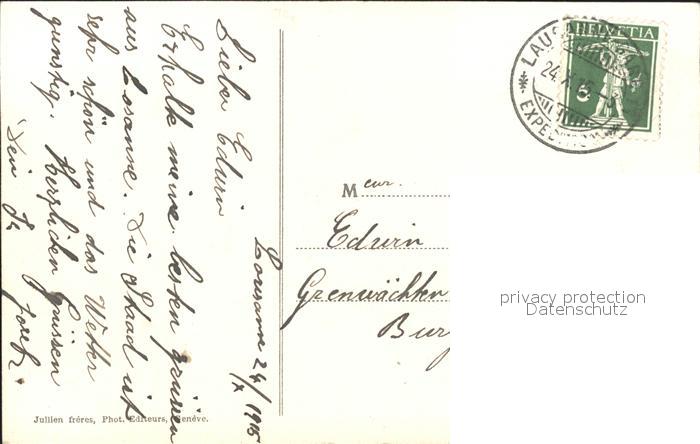 Lousanne 24/X 1915
Lieber Edwin
Erhalte meine besten grüssen
aus Losanne. Die Staad ist
sehr schön und das Wetter
günstig. Herzlichen Grüssen
Dein Fr.
Jullien frères, Phot. Editeurs, Genève.
HELVETIA
5
LAUSANNE
24.X.15.
EXPED
Meur.
Edwin
Grenwächter
Bur
privacy protection
Datenschutz